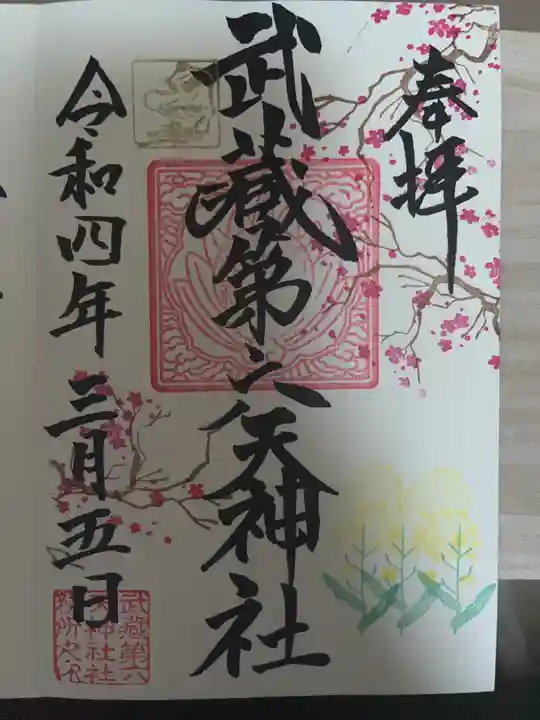 奉拝
武蔵第六天神社
令和四年三月五日
武蔵第六
天神社社
務所之印